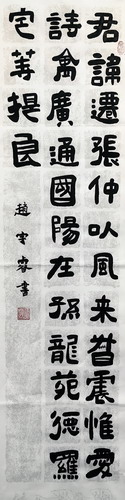 君諱遷張仲以風来昔震惟愛
詩禽廣通國陽在孫龍苑德羅
它善提良
趙書